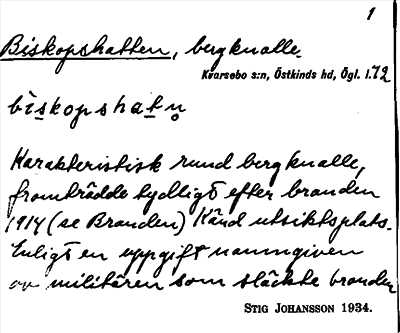 1
Biskopshatten, bergknalle.
Kvarsebo s:n, Östkinds hd, Ögl. l.72
bìskopshatn̥
Karakteristisk rund bergknalle,
framträdde tydligt efter branden
1914 (se Branden) Känd utsiktsplats.
Enligt en uppgift namngiven
av militären som släckte branden
STIG JOHANSSON 1934.